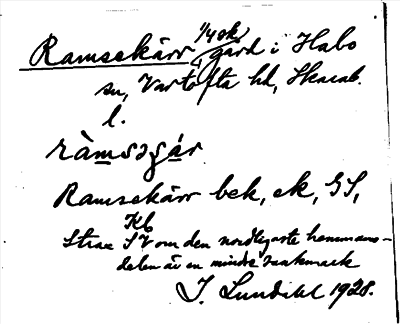 Ramsekärr 1/4 ek gård i Habo
sn, Vartofta hd, Skarab.
l.
ràmsəgár
Ramsekärr bek, ek, GS,
Kb
Strax SV om den nordligaste hemmans-
delen är en mindre
J. Lundahl 1928.